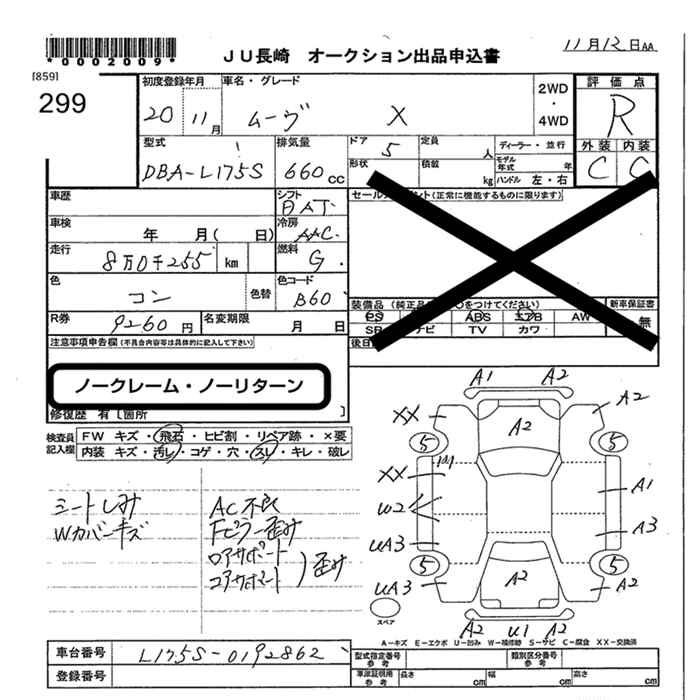 *0002009*
JU長崎 オークション出品申込書
11月12日AA
[859]
299
初度登録年月
20 11月
車名・グレード
ムーヴ X
2WD
・
4WD
評価点
R
外装 内装
C C
型式
DBA-L175S
排気量
660cc
ドア
5
定員
人
ディーラー・並行
形状
積載
kg
モデル年式
年
ハンドル 左・右
車歴
シフト
DAT
車検
年 月( 日)
冷房
AAC
走行
8万0千255 km
燃料
G
色
コン
色替
色コード
B60
R券
9260円
名変期限
月 日
注意事項申告欄(不具合内容等は具体的に記入して下さい)
ノークレーム・ノーリターン
修復歴 有 [箇所 ]
(正常に機能するものに限ります)
装備品
をつけてください)
新車保証書
無
ABS
AW
TV
カワ
検査員記入欄
FW キズ・飛石・ヒビ割・リペア跡・×要
内装 キズ・汚レ・コゲ・穴・スレ・キレ・破レ
シートしみ
Wカバーキズ
AC不良
Fピラー歪み
ロアサポート
コアサポート
歪み
A1 A2
XX A2 A2
5 5
XX
W2 A1
UA3 A3
5 5
UA3 A2 A2
スペア
A2 U1 A2
A-キズ E-エクボ U-凹み W-補修跡 S-サビ C-腐食 XX-交換済
車台番号
L175S-0192862
登録番号
型式指定番号
参考
類別区分番号
参考
車庫証明用
参考
長さ cm
幅 cm
高さ cm